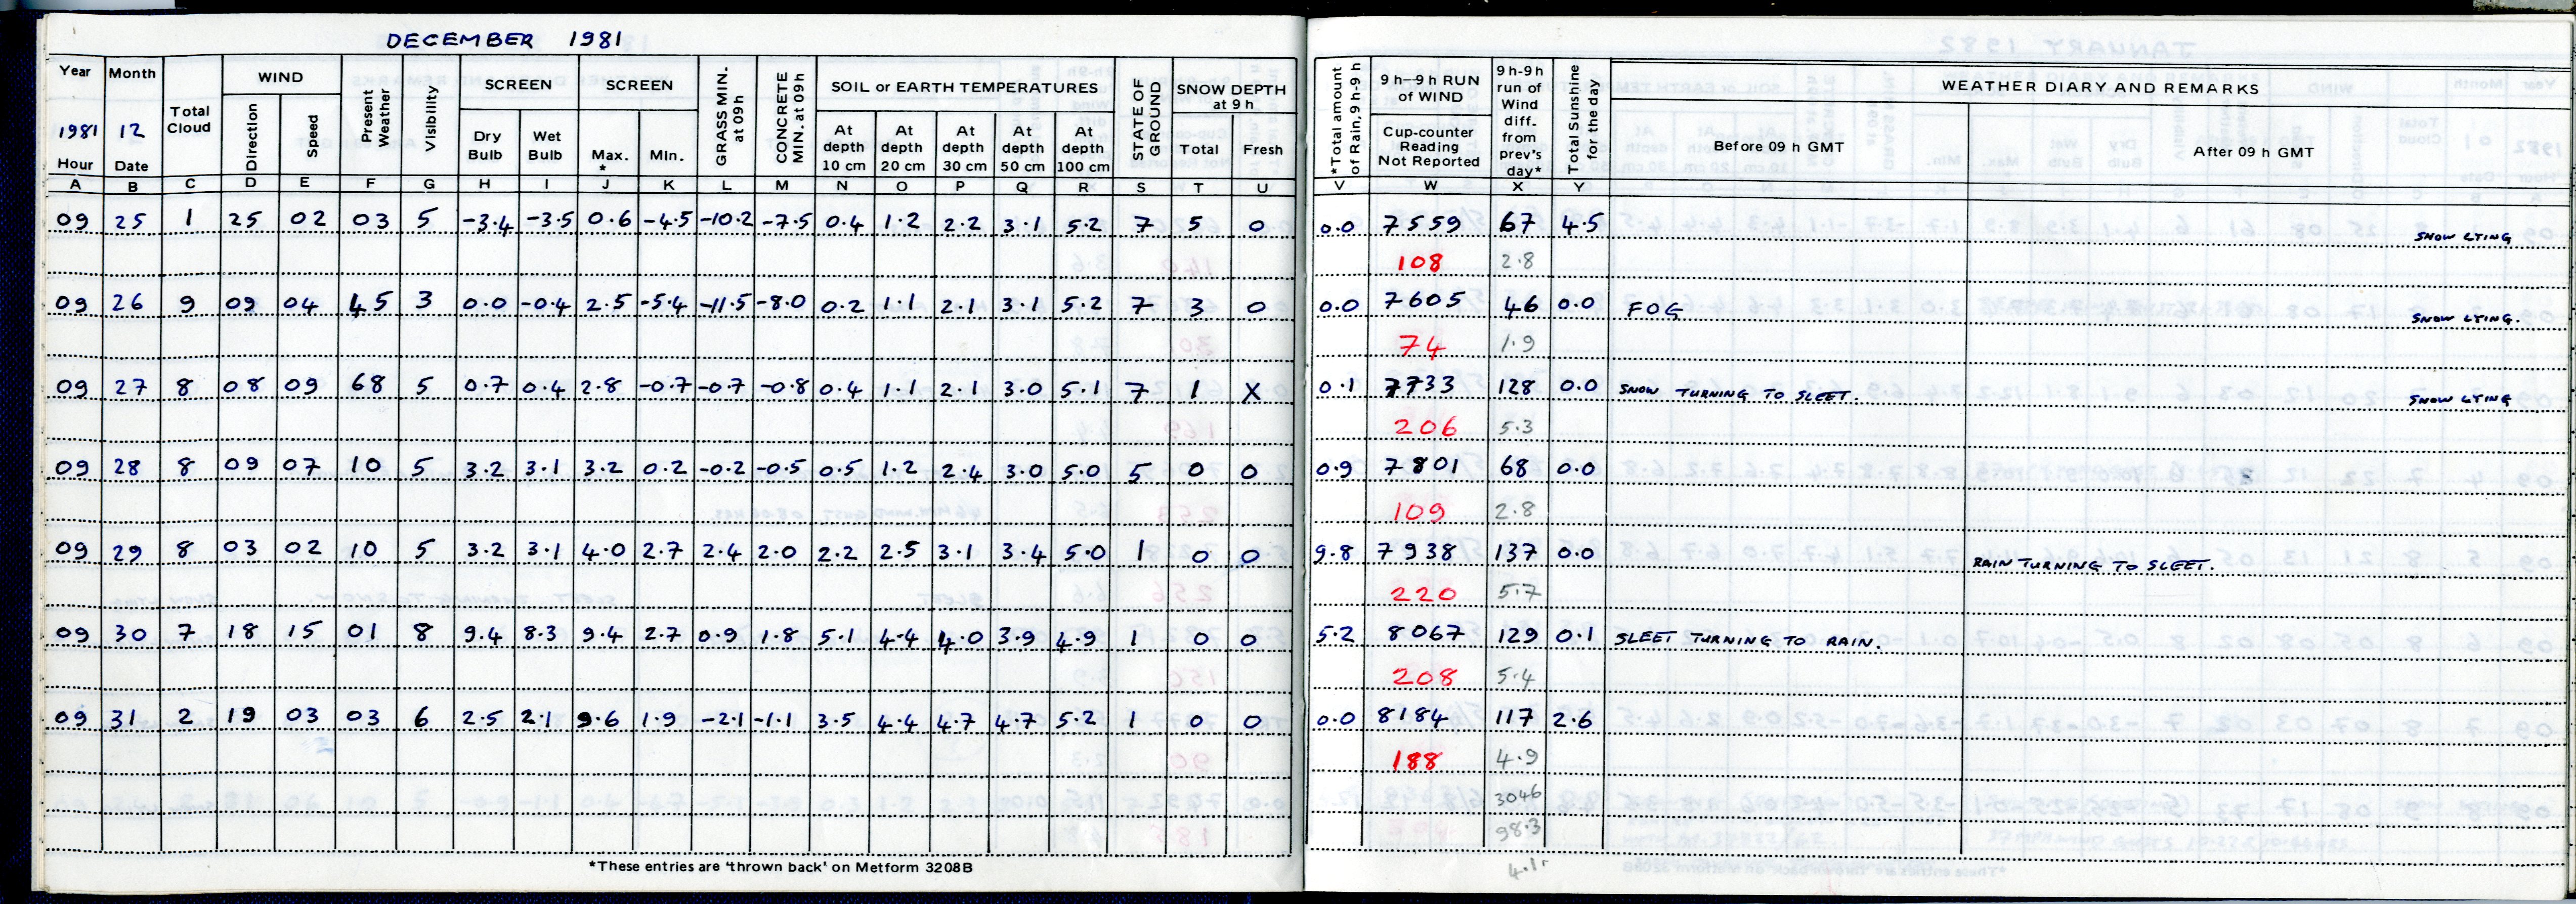 DECEMBER 1981
Year Month Total Cloud WIND Present Weather Visibility SCREEN SCREEN GRASS MIN. at 09h CONCRETE MIN. at 09h SOIL or EARTH TEMPERATURES STATE OF GROUND SNOW DEPTH at 9 h *Total amount of Rain, 9h-9h 9 h–9 h RUN of WIND 9h-9h run of Wind diff. from prev's day* Total Sunshine for the day WEATHER DIARY AND REMARKS
1981 12 Direction Speed Dry Bulb Wet Bulb Max. * Min. At depth 10 cm At depth 20 cm At depth 30 cm At depth 50 cm At depth 100 cm Total Fresh Cup-counter Reading Not Reported Before 09 h GMT After 09 h GMT
Hour Date
A B C D E F G H I J K L M N O P Q R S T U V W X Y
09 25 1 25 02 03 5 -3.4 -3.5 0.6 -4.5 -10.2 -7.5 0.4 1.2 2.2 3.1 5.2 7 5 0 0.0 7559 67 4.5 SNOW LYING
108 2.8
09 26 9 09 04 45 3 0.0 -0.4 2.5 -5.4 -11.5 -8.0 0.2 1.1 2.1 3.1 5.2 7 3 0 0.0 7605 46 0.0 FOG SNOW LYING.
74 1.9
09 27 8 08 09 68 5 0.7 0.4 2.8 -0.7 -0.7 -0.8 0.4 1.1 2.1 3.0 5.1 7 1 X 0.1 7733 128 0.0 SNOW TURNING TO SLEET. SNOW LYING
206 5.3
09 28 8 09 07 10 5 3.2 3.1 3.2 0.2 -0.2 -0.5 0.5 1.2 2.4 3.0 5.0 5 0 0 0.9 7801 68 0.0
109 2.8
09 29 8 03 02 10 5 3.2 3.1 4.0 2.7 2.4 2.0 2.2 2.5 3.1 3.4 5.0 1 0 0 9.8 7938 137 0.0 RAIN TURNING TO SLEET.
220 5.7
09 30 7 18 15 01 8 9.4 8.3 9.4 2.7 0.9 1.8 5.1 4.4 4.0 3.9 4.9 1 0 0 5.2 8067 129 0.1 SLEET TURNING TO RAIN.
208 5.4
09 31 2 19 03 03 6 2.5 2.1 9.6 1.9 -2.1 -1.1 3.5 4.4 4.7 4.7 5.2 1 0 0 0.0 8184 117 2.6
188 4.9
3046
98.3
*These entries are 'thrown back' on Metform 3208B